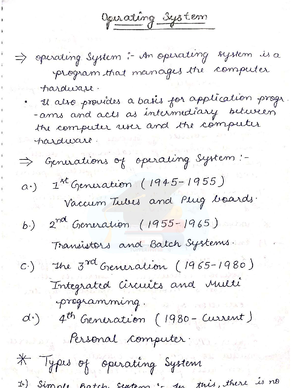 Operating System
⇒ Operating System :- An operating system is a
program that manages the computer
hardware.
• It also provides a basis for application progr
-ams and acts as intermediary between
the computer user and the computer
hardware.
⇒ Generations of operating System :-
a.) 1st Generation (1945-1955)
Vacuum Tubes and Plug boards.
b.) 2nd Generation (1955-1965)
Transistors and Batch Systems.
c.) The 3rd Generation (1965-1980)
Integrated Circuits and Multi
programming.
d.) 4th Generation (1980-Current)
Personal computer.
* Types of Operating System
1) Simple Batch System :- In this, there is no